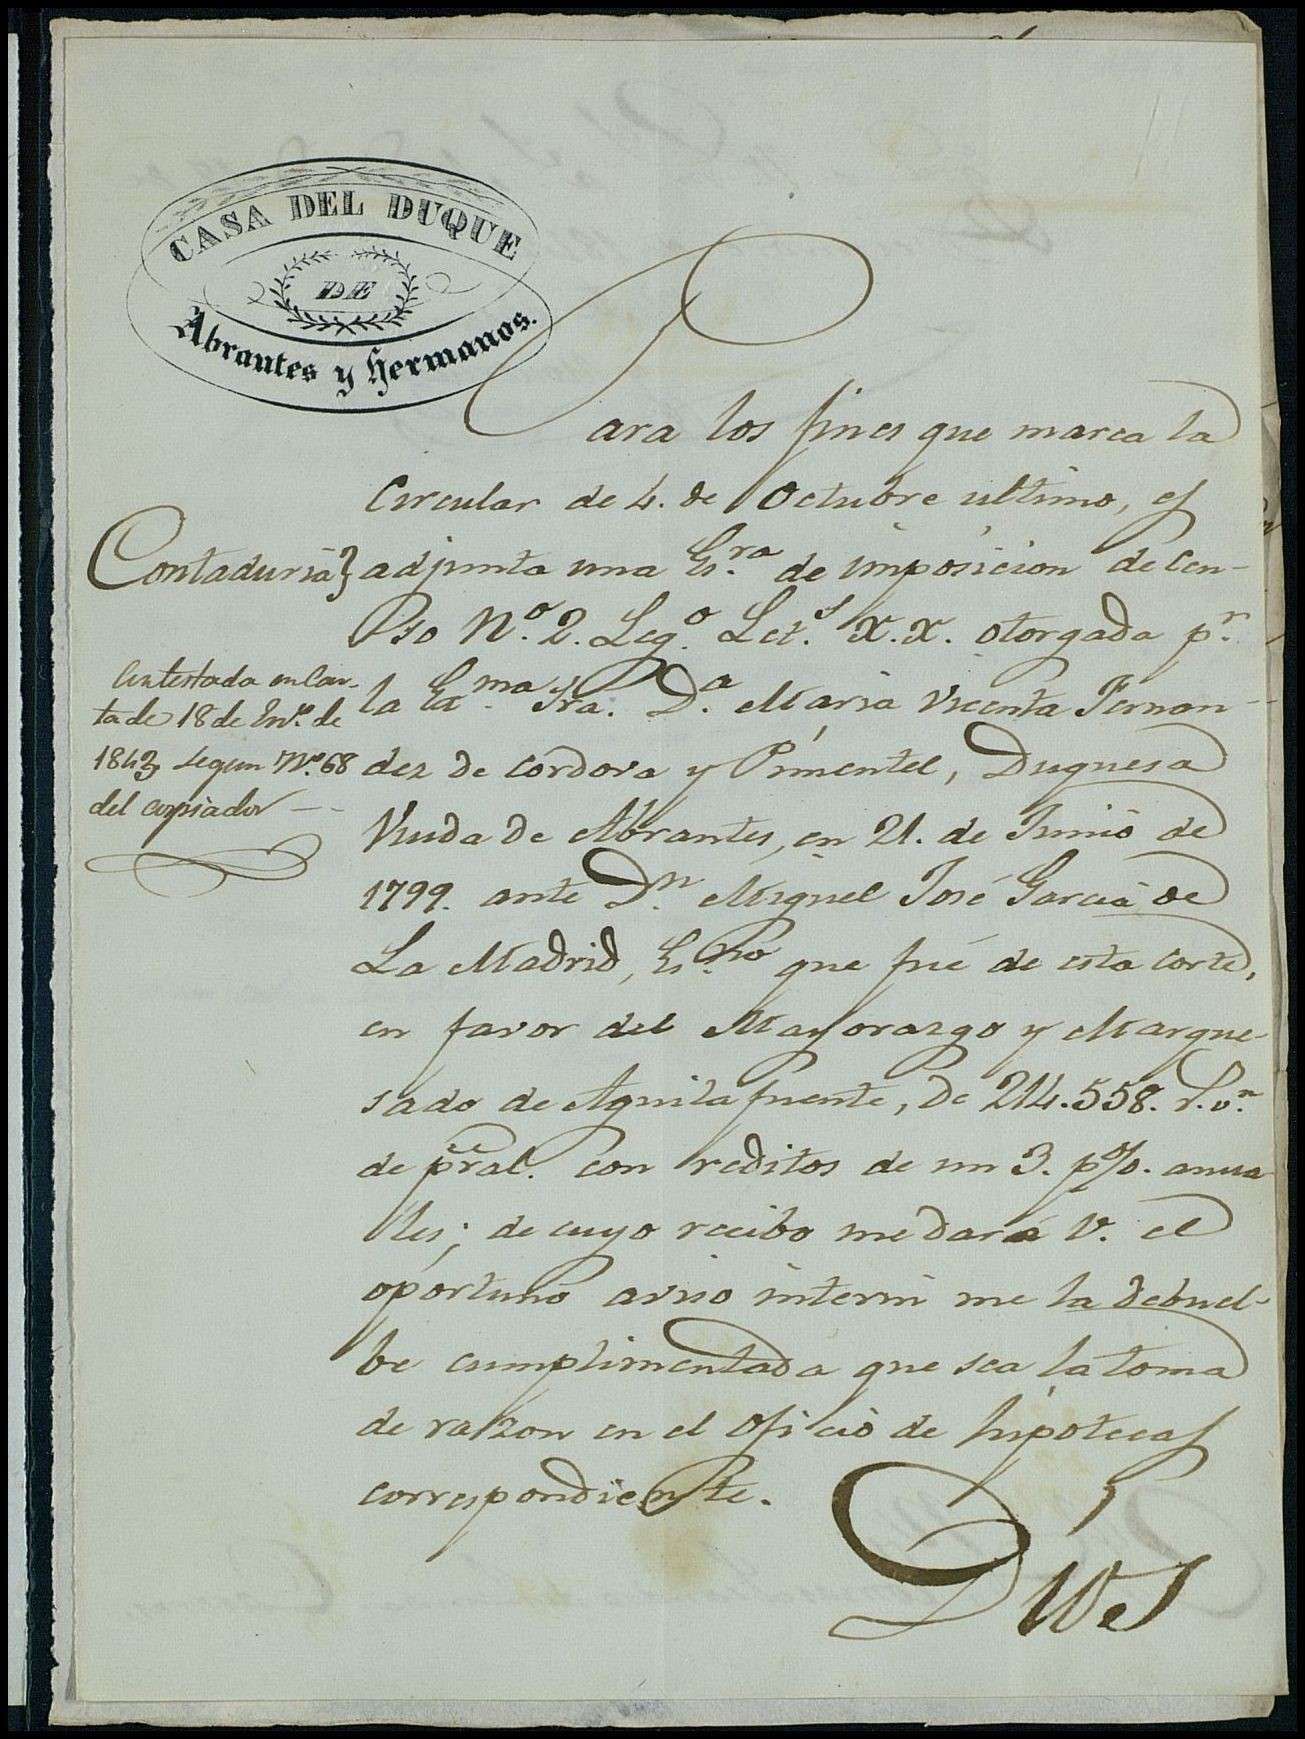 CASA DEL DUQUE
DE
Abrantes y Hermanos.
Para los fines que marca la
Circular de 4. de Octubre ultimo, es
Contaduria} adjunta una Es.ra de imposicion de Cen-
so N.o 2. Leg.o Let.s X.X. otorgada p.r
la Exma Sra. D.a Maria Vicenta Fernan-
dez de Cordova y Pimentel, Duquesa
Viuda de Abrantes, en 21. de Junio de
1799. ante D.n Miguel José Garcia de
La Madrid, Es.no que fué de esta Corte,
en favor del Mayorazgo y Marque-
sado de Aguilafuente, de 214.558. r.s v.n
de pral. con reditos de un 3. p%. anua
les; de cuyo recibo me dará V. el
oportuno aviso interin me la debuel-
be cumplimentada que sea la toma
de razon en el oficio de hipotecas
correspondiente.
Dios
Contestada en Car-
ta de 18 de En.o de
1843 segun N.o 68
del copiador